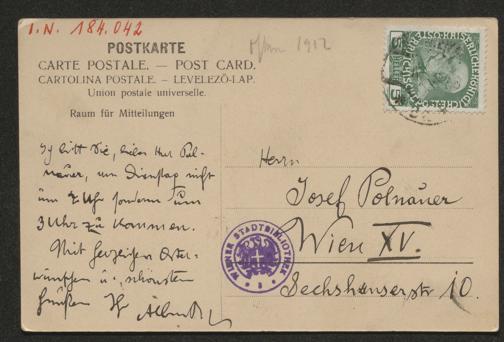 I.N. 184.042
POSTKARTE
CARTE POSTALE. — POST CARD.
CARTOLINA POSTALE. — LEVELEZŐ-LAP.
Union postale universelle.
Raum für Mitteilungen
1912
Ich bitt Sie, lieber Herr Pol-
nauer, am Dienstag nicht
um 2 Uhr sondern um
3 Uhr zu kommen.
Mit herzlichen Oster-
wünschen u. schönsten
Grüßen Ihr
Herrn
Josef Polnauer
Wien XV.
Sechshauserstr 10.
WIENER STADTBIBLIOTHEK
5 5